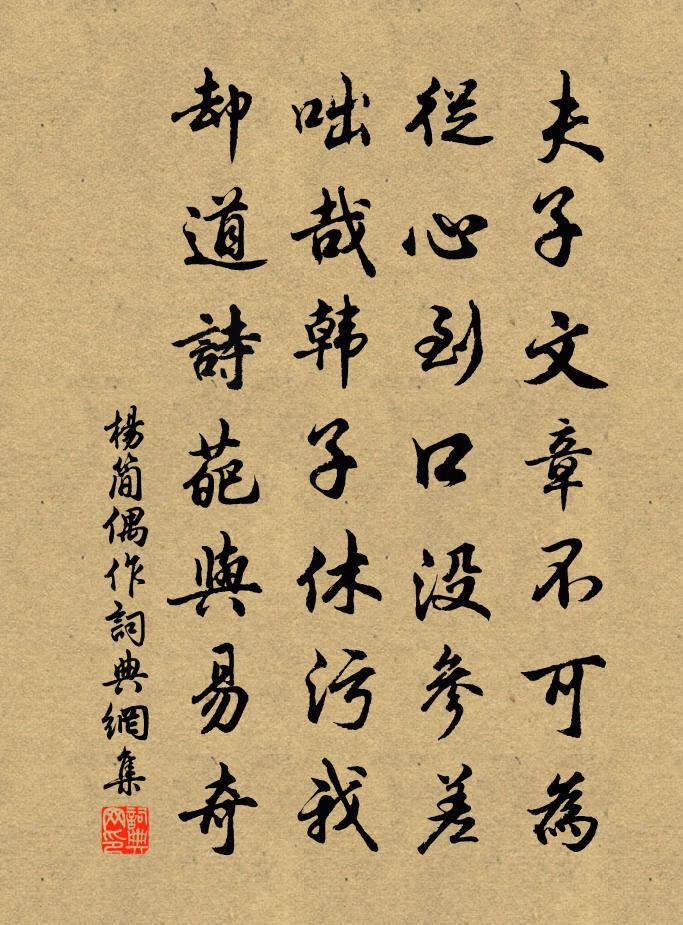 夫子文章不可為
從心到口没參差
咄哉韩子休污我
却道詩葩與易奇
楊简偶作詞典網集
詞典網印